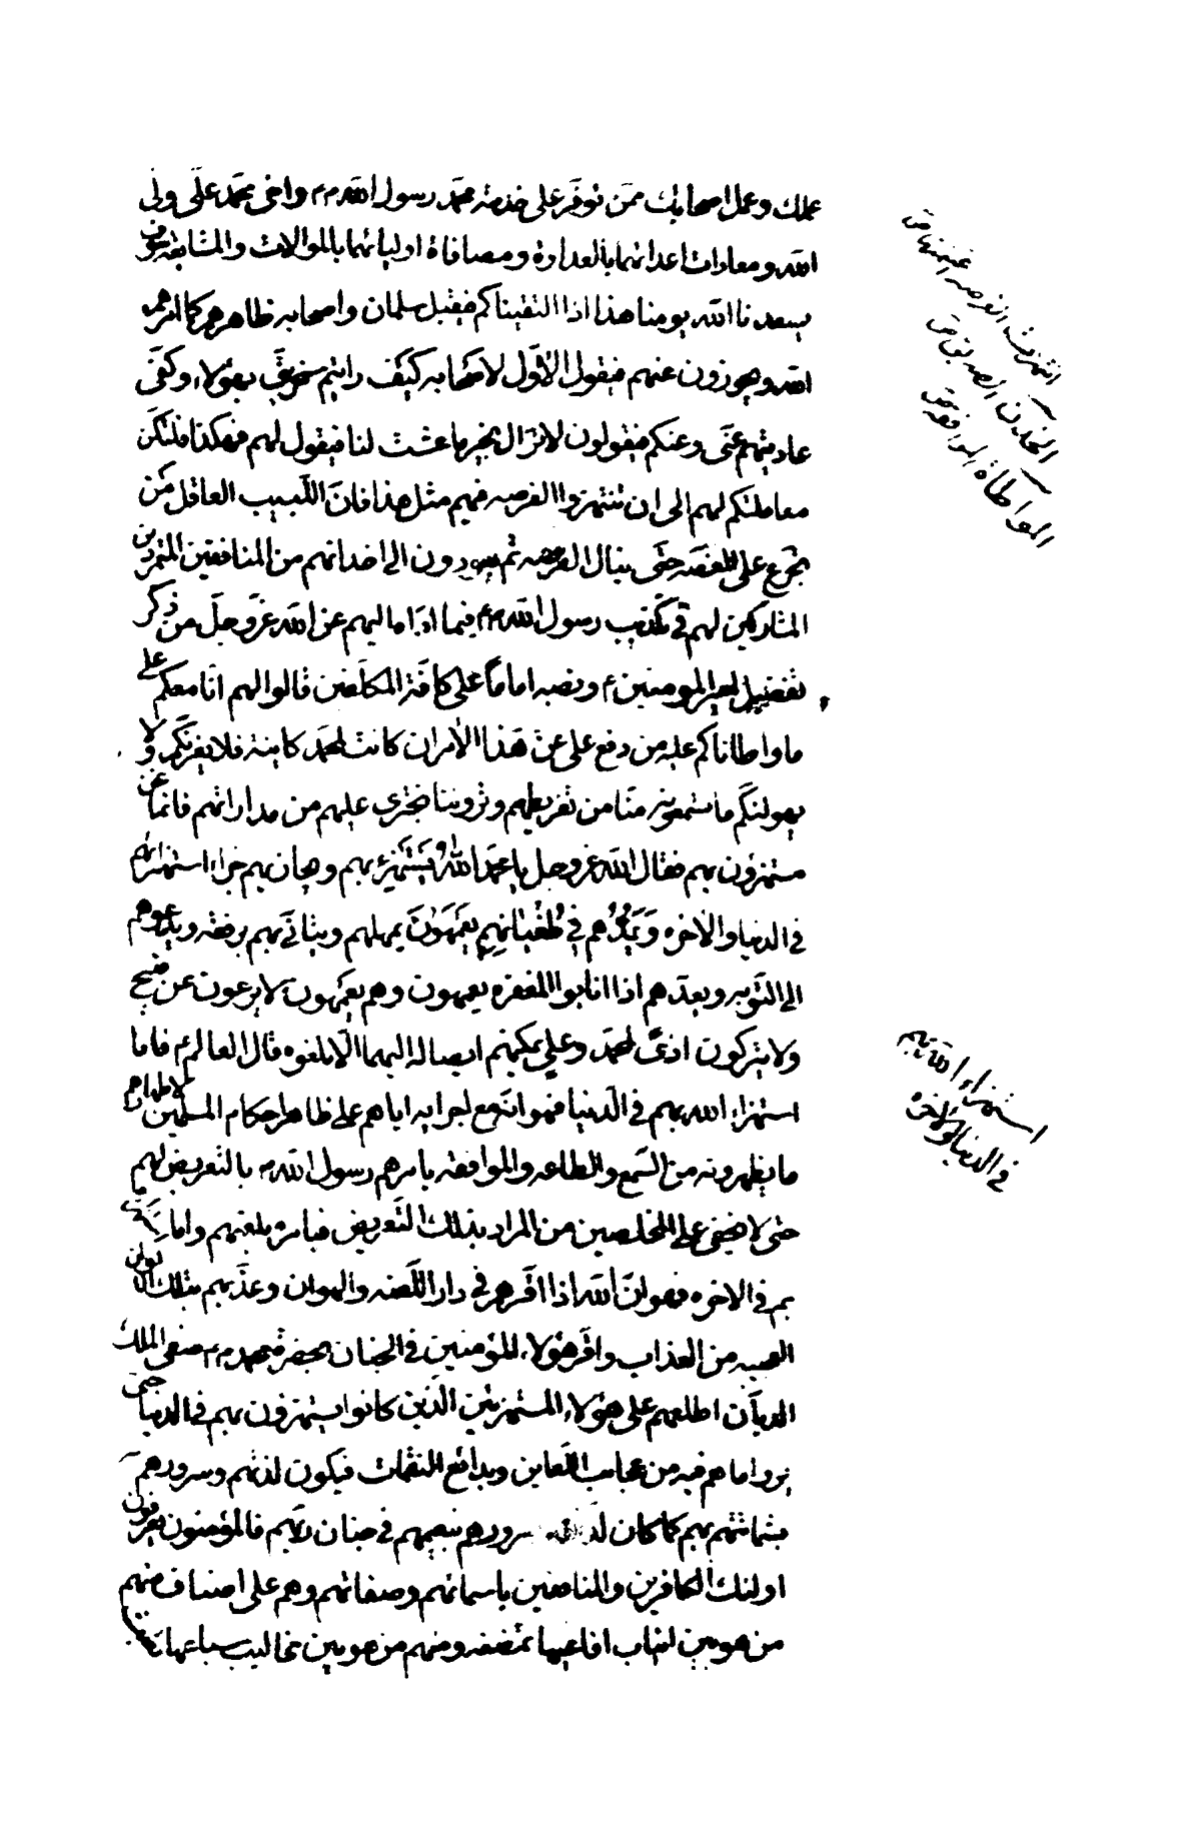 عملك وعمل اصحابك ممن توفر على خدمة محمد رسول الله ص م واخى محمد على ولى
الله ومعادات اعدائهما بالعداوة ومصافاة اوليائهما بالموالات والمتابعة سوف
يسعدنا الله يومنا هذا اذا التقيناكم فيقبل سلمان واصحابه ظاهرهم كما امرهم
الله ويجوزون عنهم فيقول الاول لاصحابه كيف رايتم سخريتى بهؤلاء وكفى
عاديتهم عنى وعنكم فيقولون لاتزال بخير ما عشت لنا فيقول لهم فهكذا فلتكن
معاملتكم لهم الى ان تنتهزوا الفرصه فيهم مثل هذا فان اللبيب العاقل من
تجرع على الغصه حتى ينال الفرصه ثم يعودون الى اخدانهم من المنافقين المتمردين
المشاركين لهم فى تكذيب رسول الله ص فيما اداه اليهم عن الله عز وجل من ذكر
تفضيل امير المومنين ع ونصبه اماما على كافة المكلفين قالوا لهم انا معكم على
ما واطاناكم عليه من دفع على عن هذا الامر ان كانت لمحمد كاينة فلا يغرنكم ولا
يهولنكم ما تسمعونه منا من تقريظهم وترونا نجترى عليهم من مداراتهم فانما نحن
مستهزؤن بهم فقال الله عز وجل يا محمد الله يستهزئ بهم ويجازيهم جزاء استهزائهم
فى الدنيا والاخره ويمدهم فى طغيانهم يعمهون يمهلهم ويتانى بهم برفقه ويدعوهم
الى التوبه ويعدهم اذا انابوا المغفره يعمهون وهم يعمهون لا يرعون عن قبيح
ولا يتركون اذى لمحمد وعلى يمكنهم ايصاله اليهما الا بلغوه قال العالم ع فاما
استهزاء الله بهم فى الدنيا فهو انه مع اجرايه اياهم على ظاهر احكام المسلمين لاظهارهم
ما يظهرونه من السمع والطاعه والموافقه يامرهم رسول الله ص بالتعريض لهم
حتى لا يخفى على المخلصين من المراد بذلك التعريض فيامره بلعنهم واما استهزاؤه
بهم فى الاخره فهو ان الله اذا اقرهم فى دار اللعنه والهوان وعذبهم بتلك الالوان
العجيبه من العذاب واقر هؤلاء المؤمنين فى الجنان بحضرة محمد ص م صفى الملك
الديان اطلعهم على هؤلاء المستهزئين الذين كانوا يستهزؤن بهم فى الدنيا حتى
يروا ما هم فيه من عجايب اللعاين وبدائع النقمات فيكون لذتهم وسرورهم
بشماتتهم بهم كما كان سرورهم بنعيمهم فى جنان ربهم فالمؤمنون يعرفون
اولئك الكافرين والمنافقين باسمائهم وصفاتهم وهم على اصناف منهم
من هو بين انياب افاعيها تمضغه ومنهم من هو بين مخاليب سباعها
انتهزت الفرصه اغتنمتها ص
الخدن الصديق ص
المواطاة الموافقه ص
استهزاء الله بهم
فى الدنيا والاخره